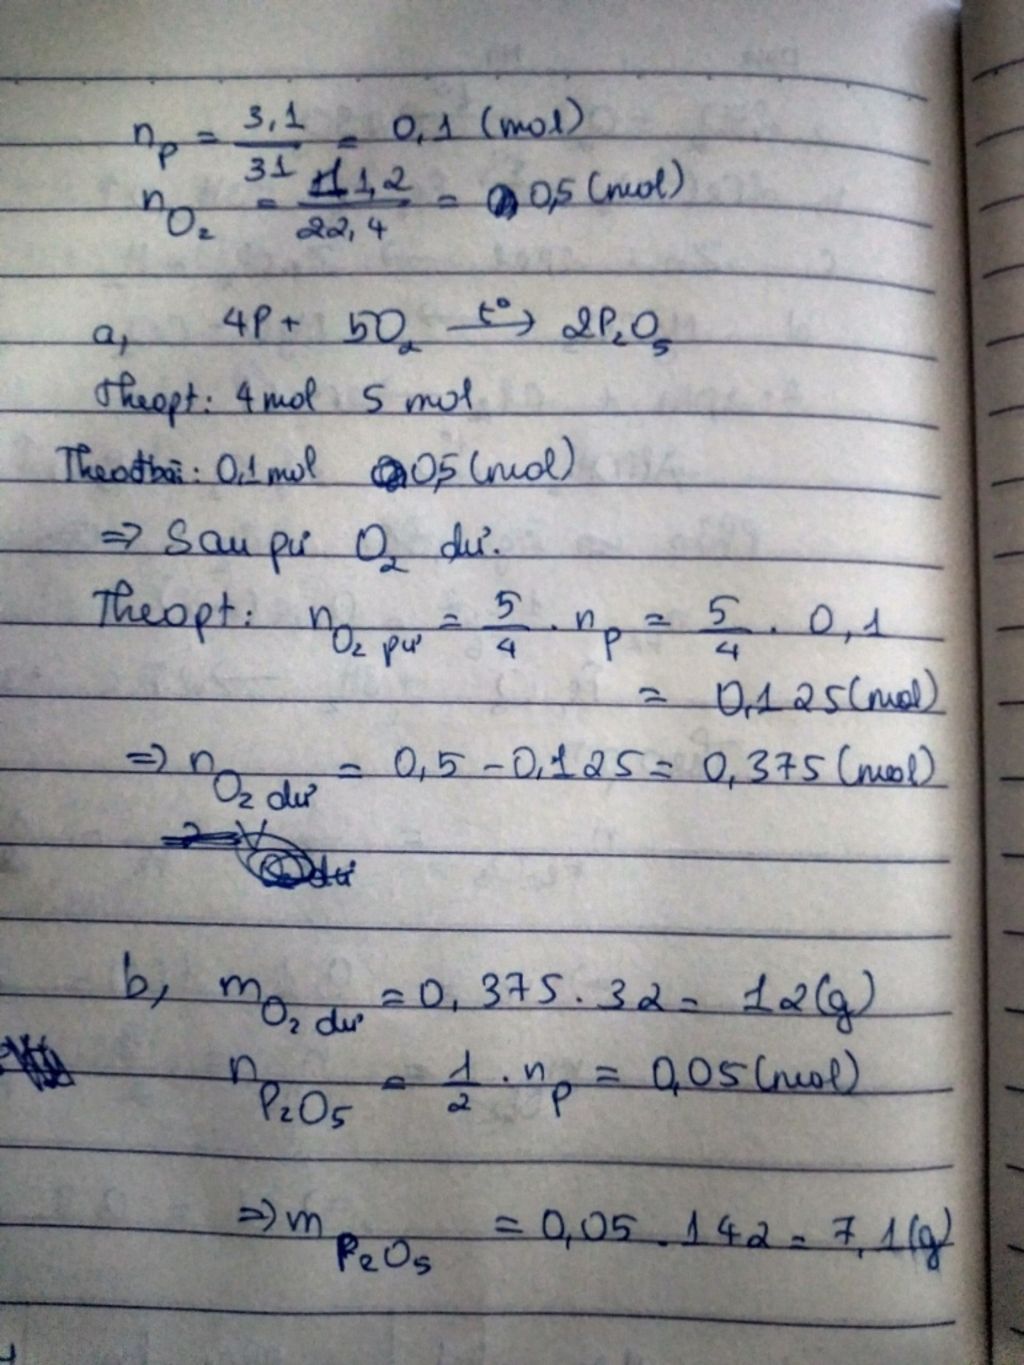 n_P = 3,1 / 31 = 0,1 (mol)
n_O₂ = 11,2 / 22,4 = 0,5 (mol)
a, 4P + 5O₂ —t°→ 2P₂O₅
Theopt: 4 mol 5 mol
Theo đbài: 0,1 mol 0,5 (mol)
=> Sau pư O₂ dư.
Theopt: n_O₂ pư = 5/4 . n_P = 5/4 . 0,1
= 0,125 (mol)
=> n_O₂ dư = 0,5 - 0,125 = 0,375 (mol)
b, m_O₂ dư = 0,375 . 32 = 12 (g)
n_P₂O₅ = 1/2 . n_P = 0,05 (mol)
=> m_P₂O₅ = 0,05 . 142 = 7,1 (g)